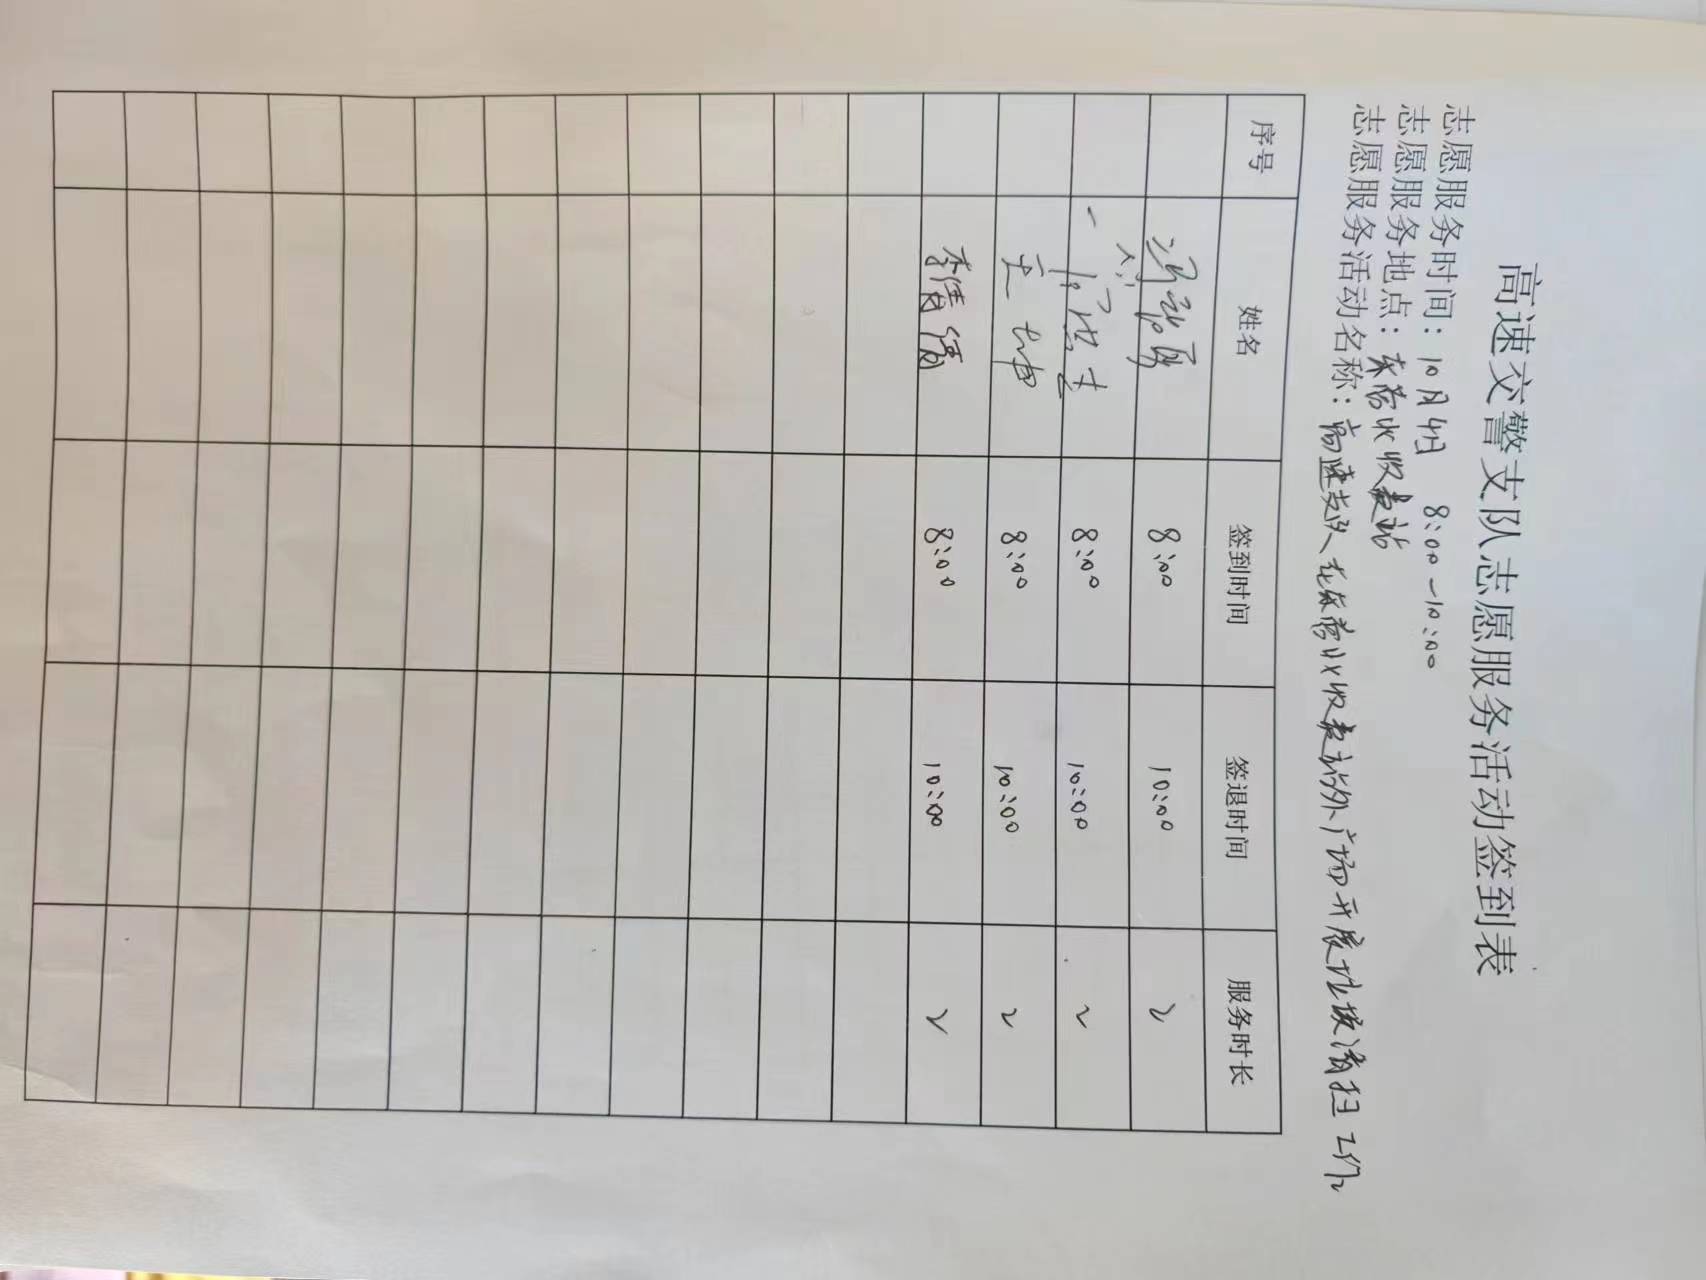 高速交警支队志愿服务活动签到表
志愿服务时间：10月4日 8:00-10:00
志愿服务地点：东营收费站
志愿服务活动名称：高速支队在东营收费站外广场开展垃圾清扫工作
序号 姓名 签到时间 签退时间 服务时长
8:00 10:00 2
8:00 10:00 2
8:00 10:00 2
李倩倩 8:00 10:00 2